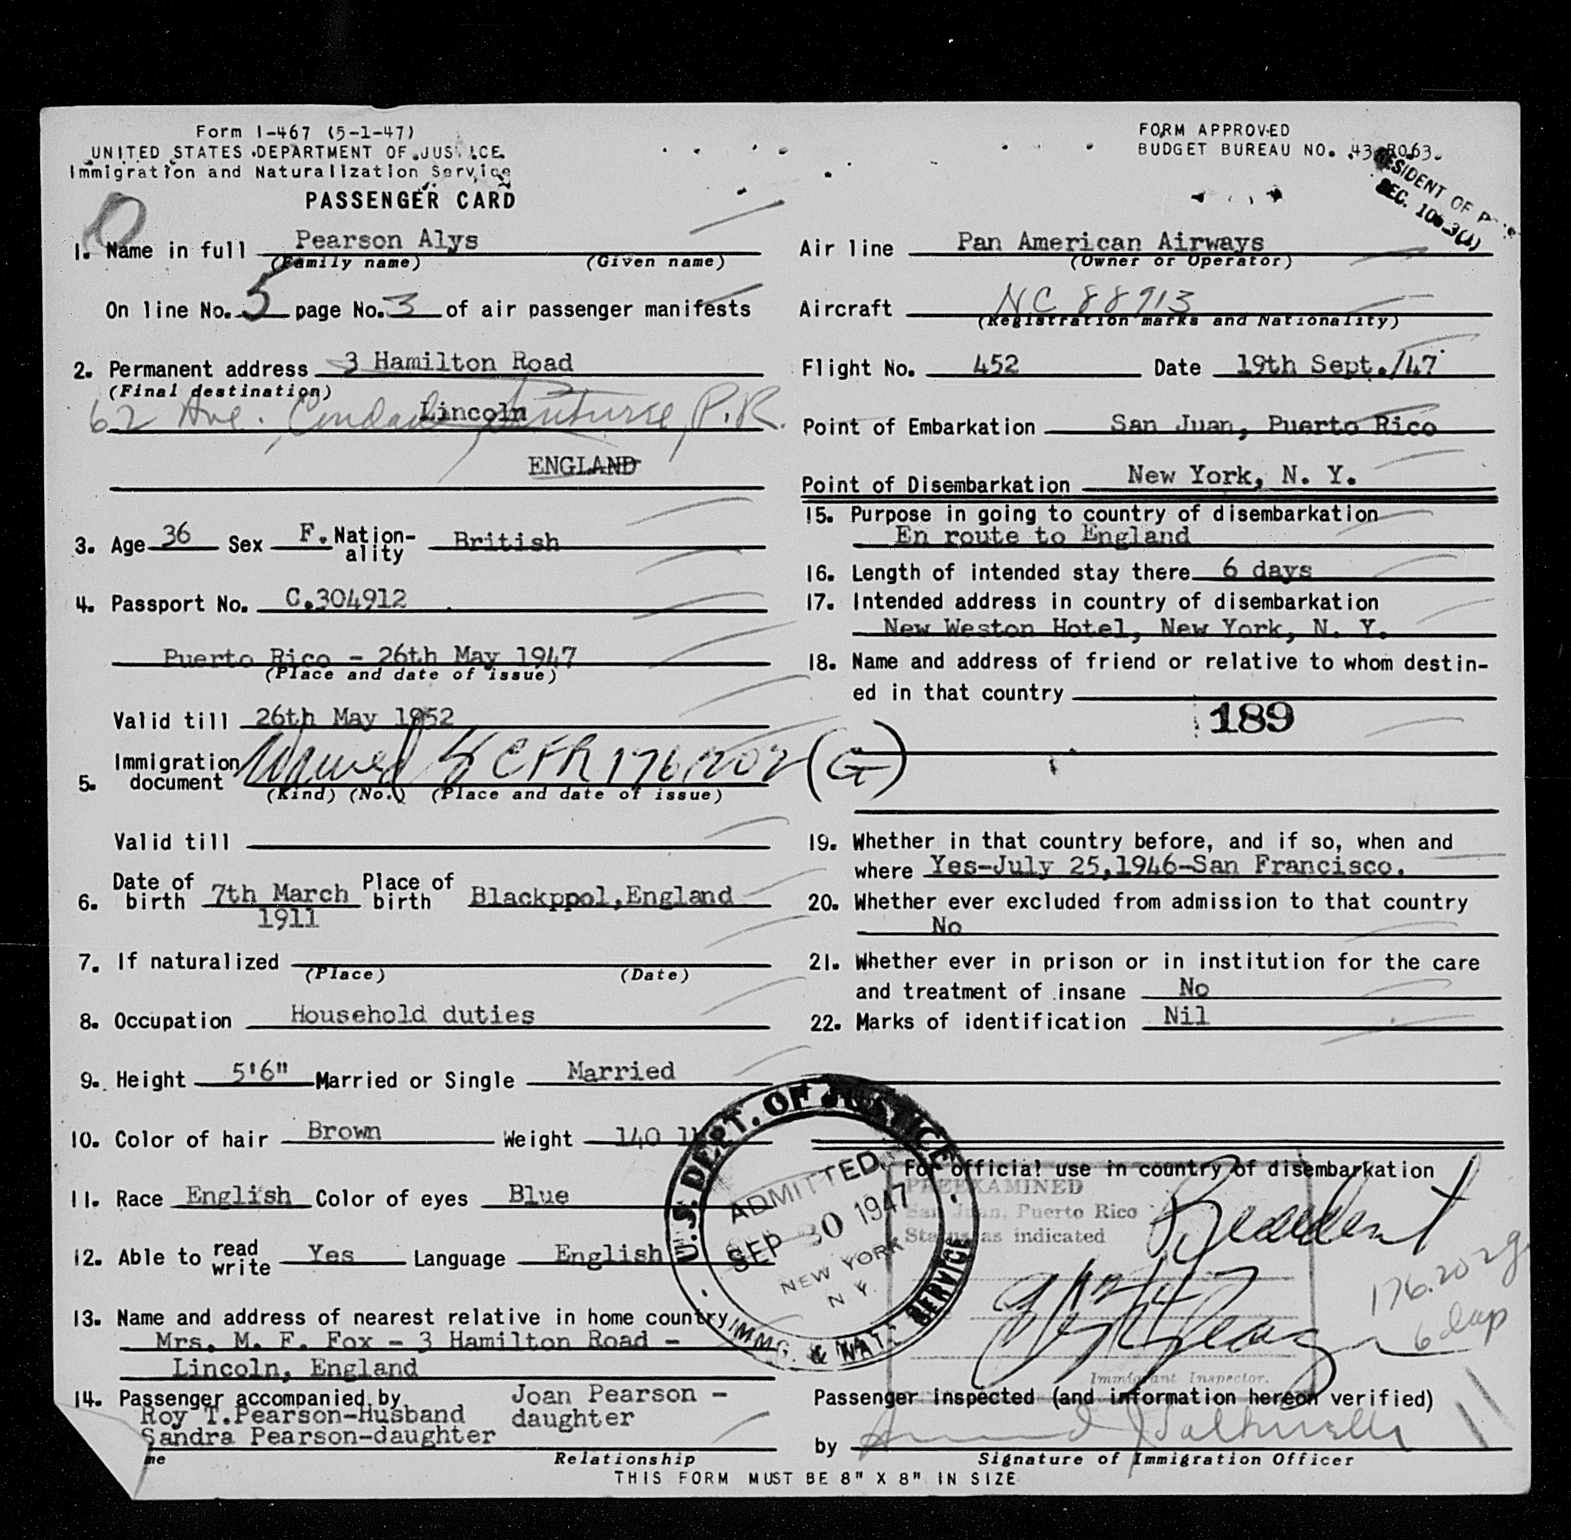 Form I-467 (5-1-47)
UNITED STATES DEPARTMENT OF JUSTICE
Immigration and Naturalization Service
PASSENGER CARD
FORM APPROVED
BUDGET BUREAU NO. 43-R063.
RESIDENT OF
SEC. 10.3(1)
1. Name in full Pearson Alys
(Family name) (Given name)
On line No. 5 page No. 3 of air passenger manifests
2. Permanent address 3 Hamilton Road
(Final destination)
Lincoln
62 Ave. Condado, Santurce, P.R.
ENGLAND
3. Age 36 Sex F. Nation-
ality British
4. Passport No. C.304912
Puerto Rico - 26th May 1947
(Place and date of issue)
Valid till 26th May 1952
5. Immigration
document Waived 8 CFR 176.202 (G)
(Kind) (No.) (Place and date of issue)
Valid till
6. Date of
birth 7th March
1911
Place of
birth Blackppol,England
7. If naturalized
(Place) (Date)
8. Occupation Household duties
9. Height 5'6" Married or Single Married
10. Color of hair Brown Weight 140
11. Race English Color of eyes Blue
12. Able to read
write Yes Language English
13. Name and address of nearest relative in home country
Mrs. M. F. Fox - 3 Hamilton Road -
Lincoln, England
14. Passenger accompanied by
Roy T.Pearson-Husband
Sandra Pearson-daughter
Joan Pearson -
daughter
me Relationship
Air line Pan American Airways
(Owner or Operator)
Aircraft NC 88913
(Registration marks and Nationality)
Flight No. 452 Date 19th Sept./47
Point of Embarkation San Juan, Puerto Rico
Point of Disembarkation New York, N. Y.
15. Purpose in going to country of disembarkation
En route to England
16. Length of intended stay there 6 days
17. Intended address in country of disembarkation
New Weston Hotel, New York, N. Y.
18. Name and address of friend or relative to whom destin-
ed in that country
189
19. Whether in that country before, and if so, when and
where Yes-July 25,1946-San Francisco.
20. Whether ever excluded from admission to that country
No
21. Whether ever in prison or in institution for the care
and treatment of insane No
22. Marks of identification Nil
For official use in country of disembarkation
PREEXAMINED
San Juan, Puerto Rico
Status as indicated
Resident
176.202g
6 days
Immigrant Inspector.
U.S. DEPT. OF JUSTICE
ADMITTED
SEP 30 1947
NEW YORK
N Y.
IMMG. & NATZ SERVICE
Passenger inspected (and information hereon verified)
by
Signature of Immigration Officer
THIS FORM MUST BE 8" X 8" IN SIZE